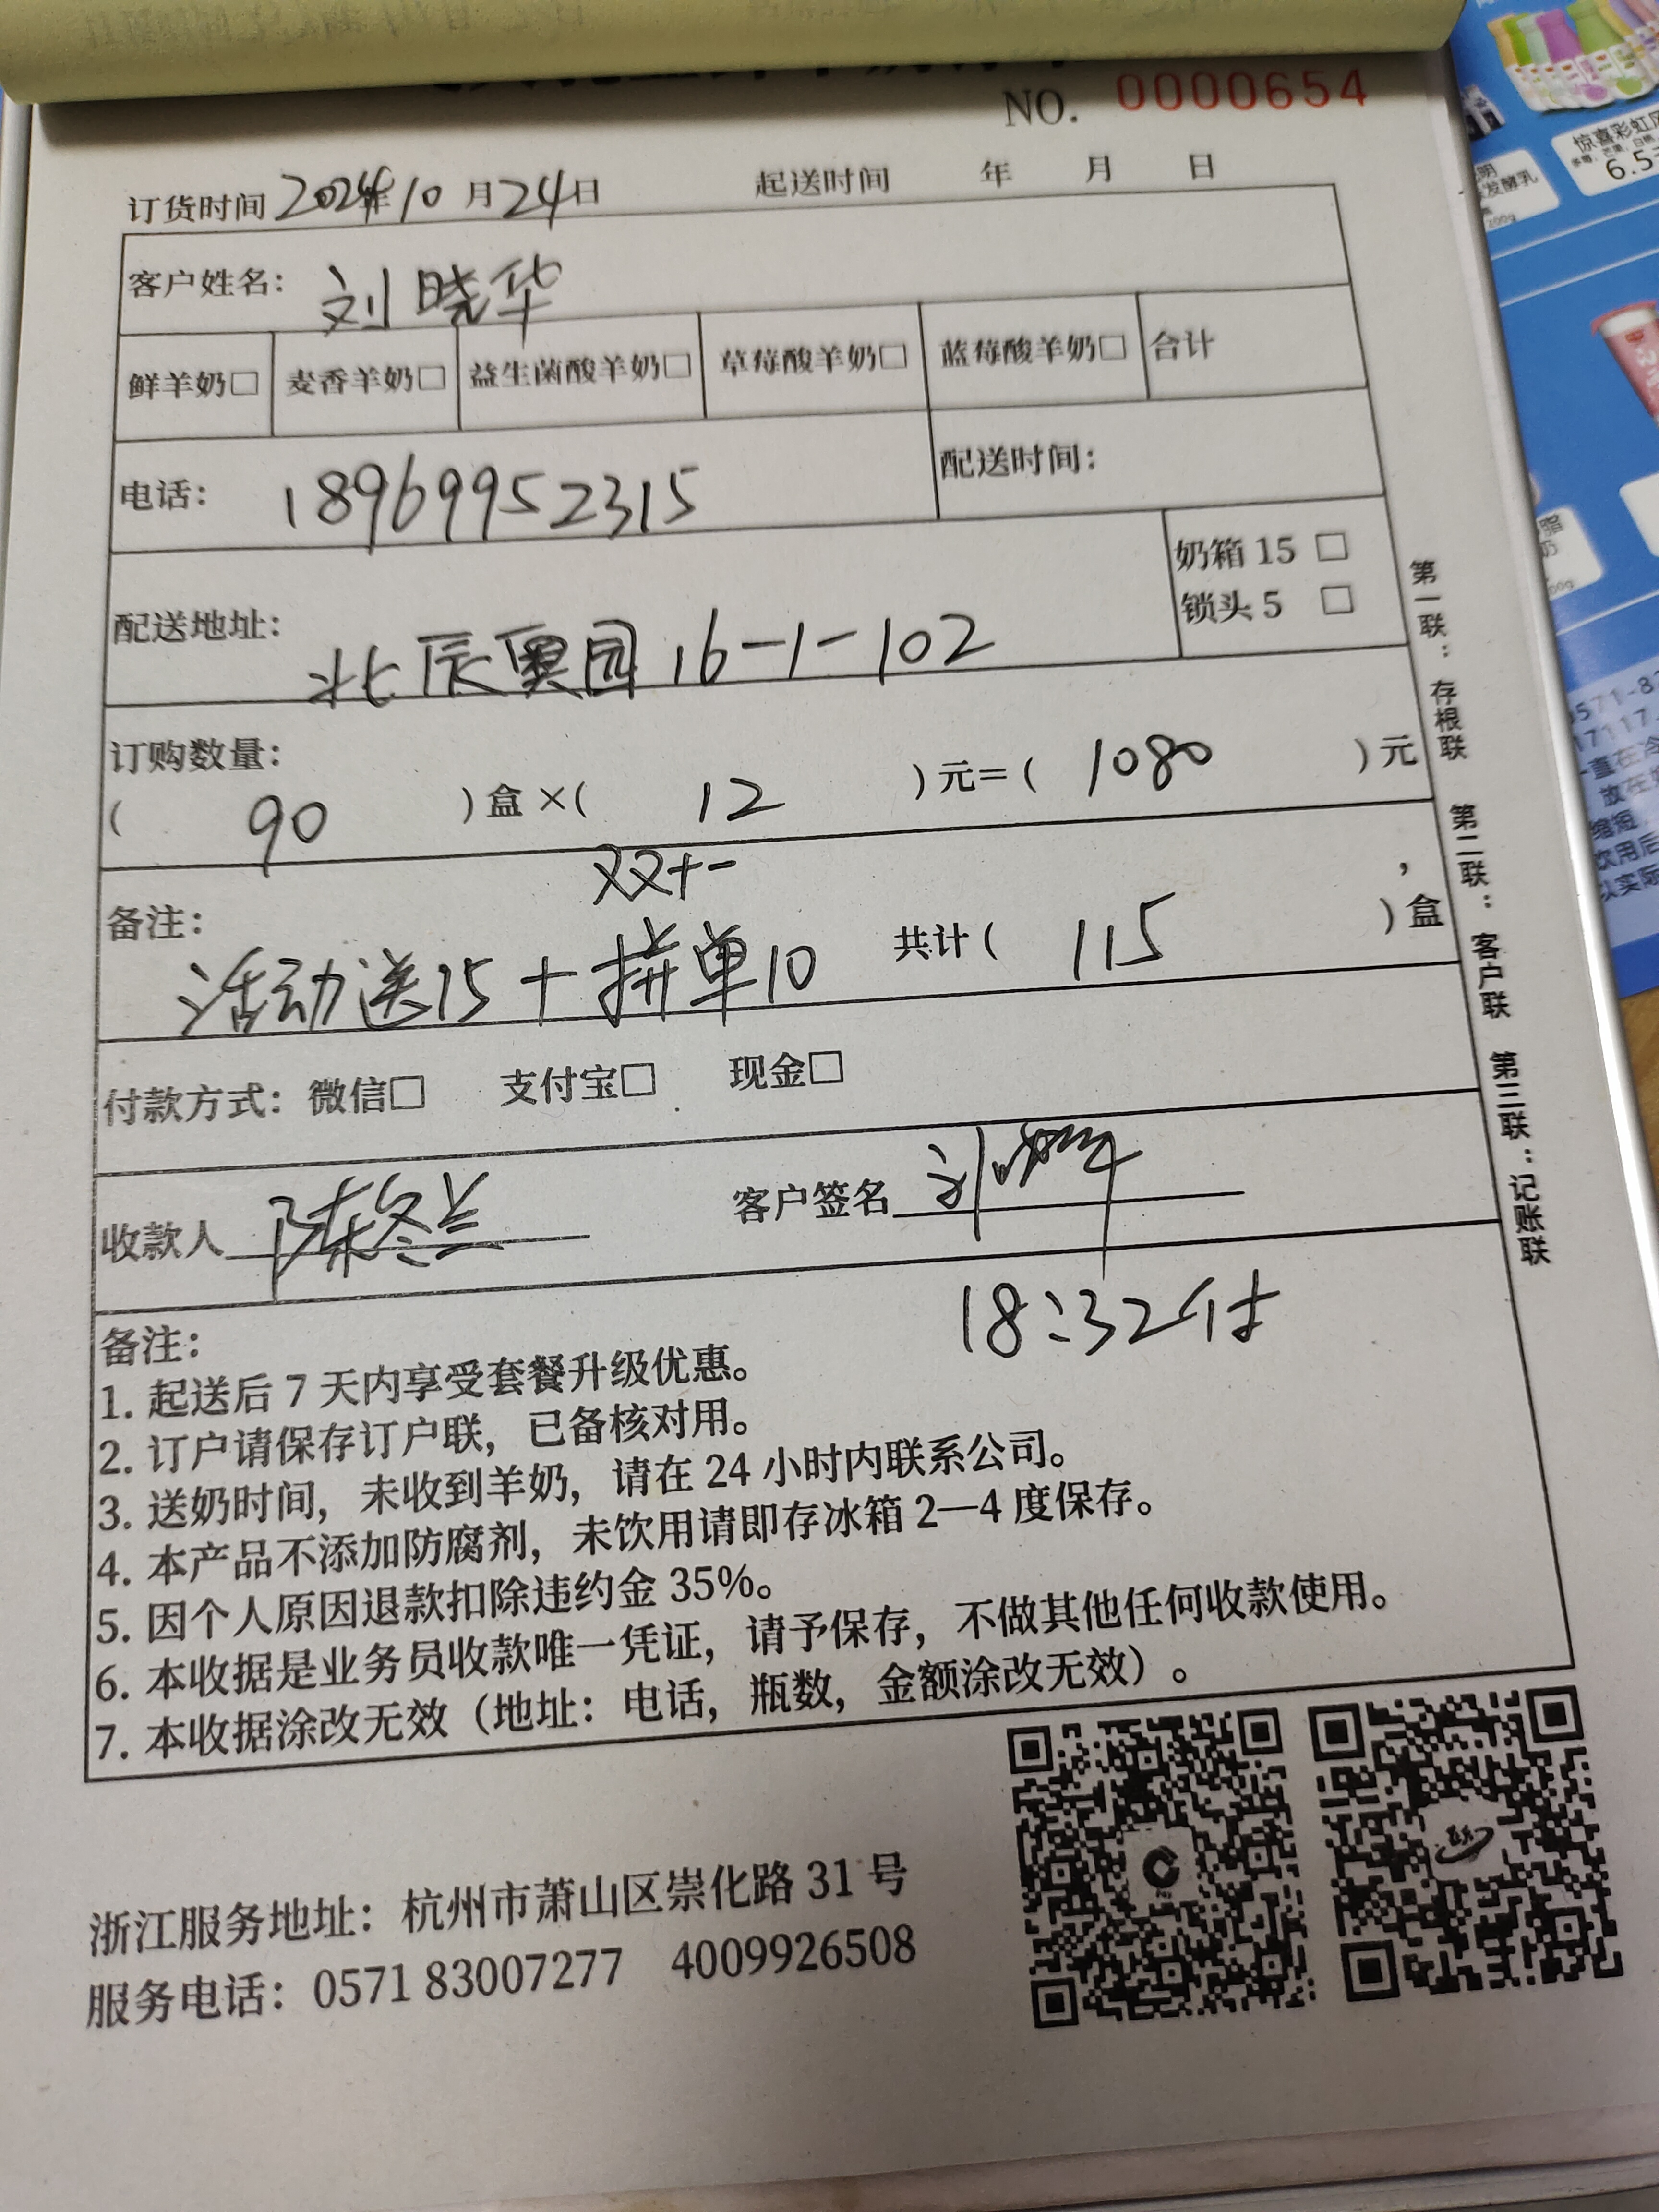 NO. 0000654
订货时间 2024年10月24日 起送时间 年 月 日
客户姓名： 刘晓华
鲜羊奶□ 麦香羊奶□ 益生菌酸羊奶□ 草莓酸羊奶□ 蓝莓酸羊奶□ 合计
电话： 18969952315 配送时间：
配送地址： 北辰奥园16-1-102
奶箱 15 □
锁头 5 □
订购数量：
( 90 ) 盒 ×( 12 ) 元=( 1080 ) 元
双十一
备注： ，
活动送15+拼单10 共计( 115 ) 盒
付款方式：微信□ 支付宝□ 现金□
收款人 陈冬兰 客户签名 刘晓华
18:32付
备注：
1. 起送后 7 天内享受套餐升级优惠。
2. 订户请保存订户联，已备核对用。
3. 送奶时间，未收到羊奶，请在 24 小时内联系公司。
4. 本产品不添加防腐剂，未饮用请即存冰箱 2—4 度保存。
5. 因个人原因退款扣除违约金 35%。
6. 本收据是业务员收款唯一凭证，请予保存，不做其他任何收款使用。
7. 本收据涂改无效（地址：电话，瓶数，金额涂改无效）。
第一联：存根联 第二联：客户联 第三联：记账联
浙江服务地址：杭州市萧山区崇化路 31 号
服务电话：0571 83007277 4009926508
惊喜彩虹
6.5
发酵乳
200g